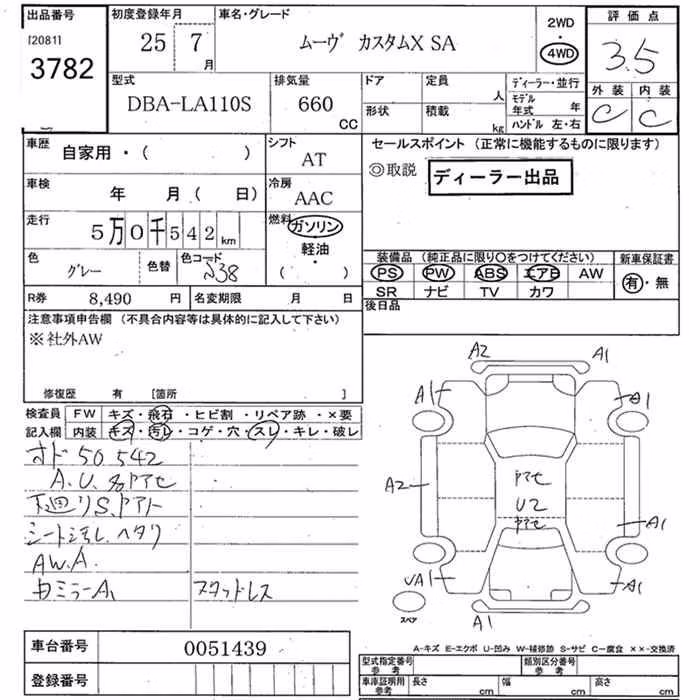 出品番号 初度登録年月 車名・グレード 2WD 評価点
[2081] 3782 25 7 月 ムーヴ カスタムX SA 4WD 3.5
型式 排気量 ドア 定員 人 ディーラー・並行 外装 内装
DBA-LA110S 660 CC 形状 積載 kg モデル年式 年 C C
ハンドル 左・右
車歴 自家用・( ) シフト AT セールスポイント (正常に機能するものに限ります)
◎取説 ディーラー出品
車検 年 月( 日) 冷房 AAC
走行 5万0千542km 燃料 ガソリン・軽油・( )
色 グレー 色替 色コード S38
装備品 (純正品に限り○をつけてください) 新車保証書
PS PW ABS エアB AW 有・無
SR ナビ TV カワ
R券 8,490 円 名変期限 月 日 後日品
注意事項申告欄 (不具合内容等は具体的に記入して下さい)
※社外AW
修復歴 有 [箇所 ]
検査員 FW キズ・飛石・ヒビ割・リペア跡・×要
記入欄 内装 キズ・汚レ・コゲ・穴・スレ・キレ・破レ
オド50,542
A.U.多
下廻りS.
シート汚し.ヘタリ
AW.A.
ミラーA1
スタッドレス
A2 A1
A1 A1
A2
U2
A1
UA1 A1
スペア
A1
A-キズ E-エクボ U-凹み W-補修跡 S-サビ C-腐食 ××-交換済
車台番号 0051439
登録番号
型式指定番号 参考 類別区分番号 参考
車庫証明用 参考 長さ cm 幅 cm 高さ cm